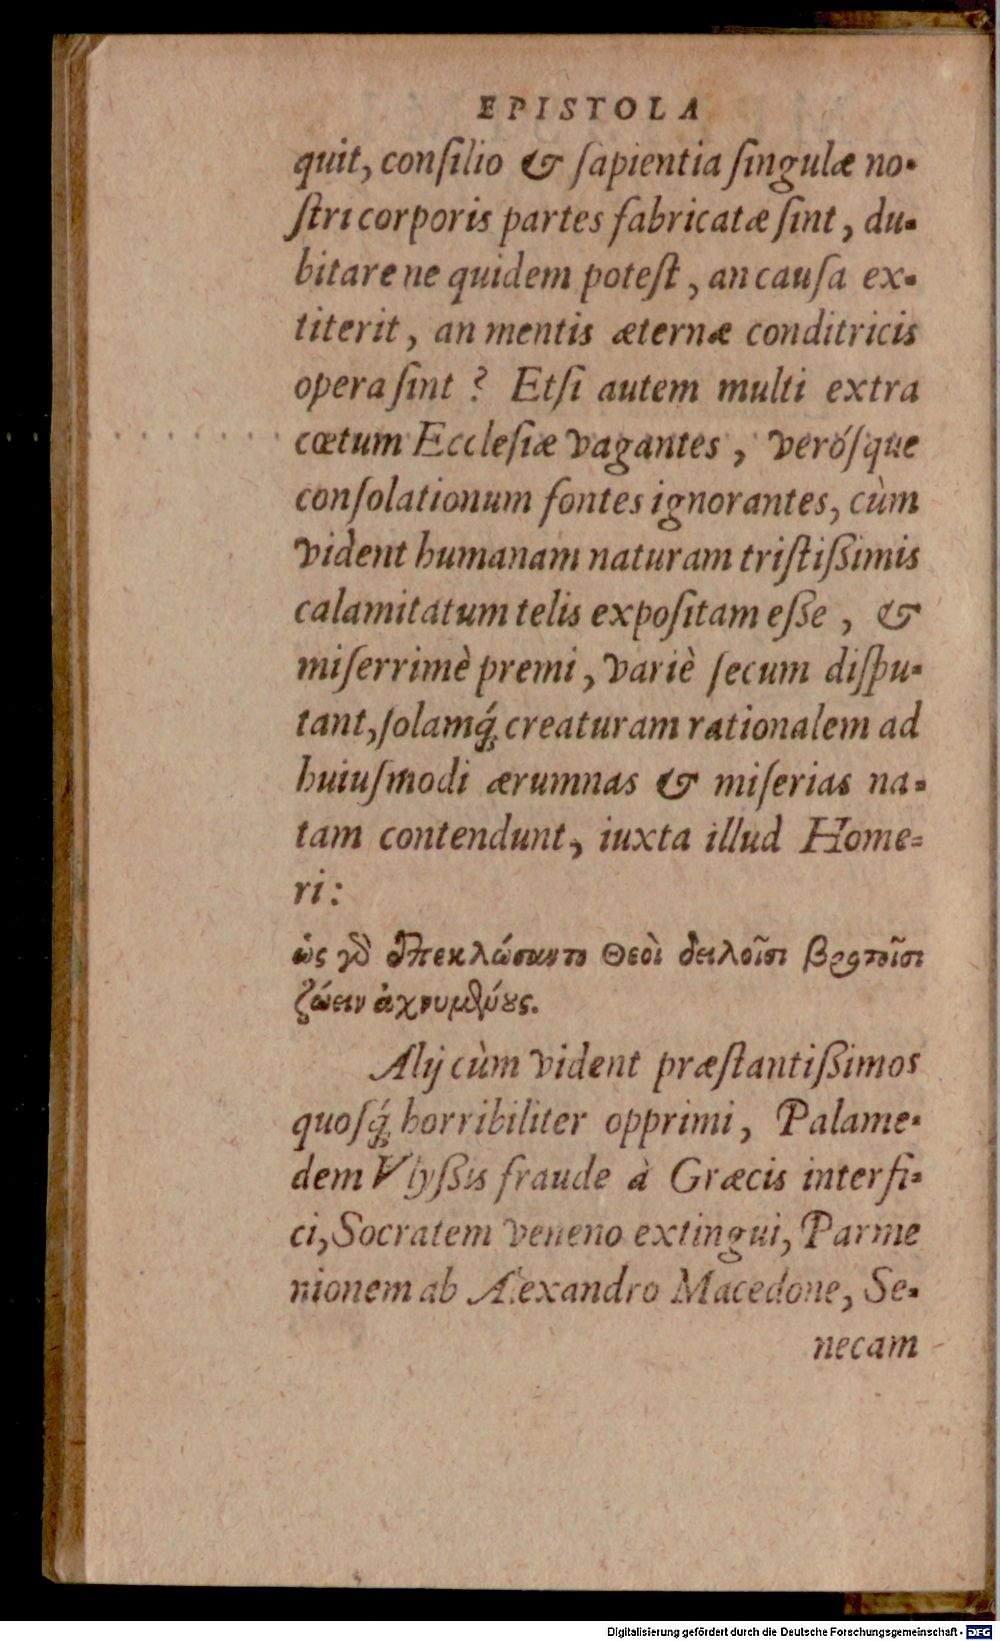 EPISTOLA
quit, conſilio & ſapientia ſingulæ no-
ſtri corporis partes fabricatæ ſint, du-
bitare ne quidem poteſt, an cauſa ex-
titerit, an mentis æternæ conditricis
opera ſint? Etſi autem multi extra
cœtum Eccleſiæ vagantes, veróſque
conſolationum fontes ignorantes, cùm
vident humanam naturam triſtiſsimis
calamitatum telis expoſitam eſse, &
miſerrimè premi, variè ſecum diſpu-
tant, ſolamq́; creaturam rationalem ad
huiuſmodi ærumnas & miſerias na-
tam contendunt, iuxta illud Home-
ri:
ὡς γὸ ἐπεκλώσαντο Θεοὶ δειλοῖσι βροτοῖσι
ζώειν ἀχνυμένους.
Alij cùm vident præſtantiſsimos
quoſq́; horribiliter opprimi, Palame-
dem Vlyſsis fraude à Græcis interfi-
ci, Socratem veneno extingui, Parme
nionem ab Alexandro Macedone, Se-
necam
Digitalisierung gefördert durch die Deutsche Forschungsgemeinschaft - DFG